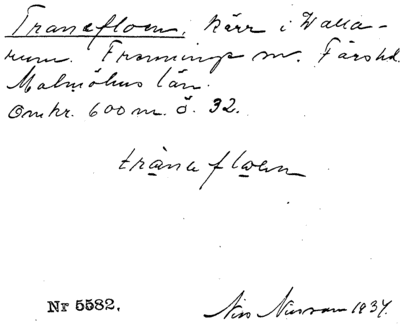 Tranefloen, kärr i Valla-
rum. Frenninge sn. Färs hd.
Malmöhus län.
Omkr. 600 m. ö. 32.
trànefloen
Nr 5582.
Nils Nilsson 1934.